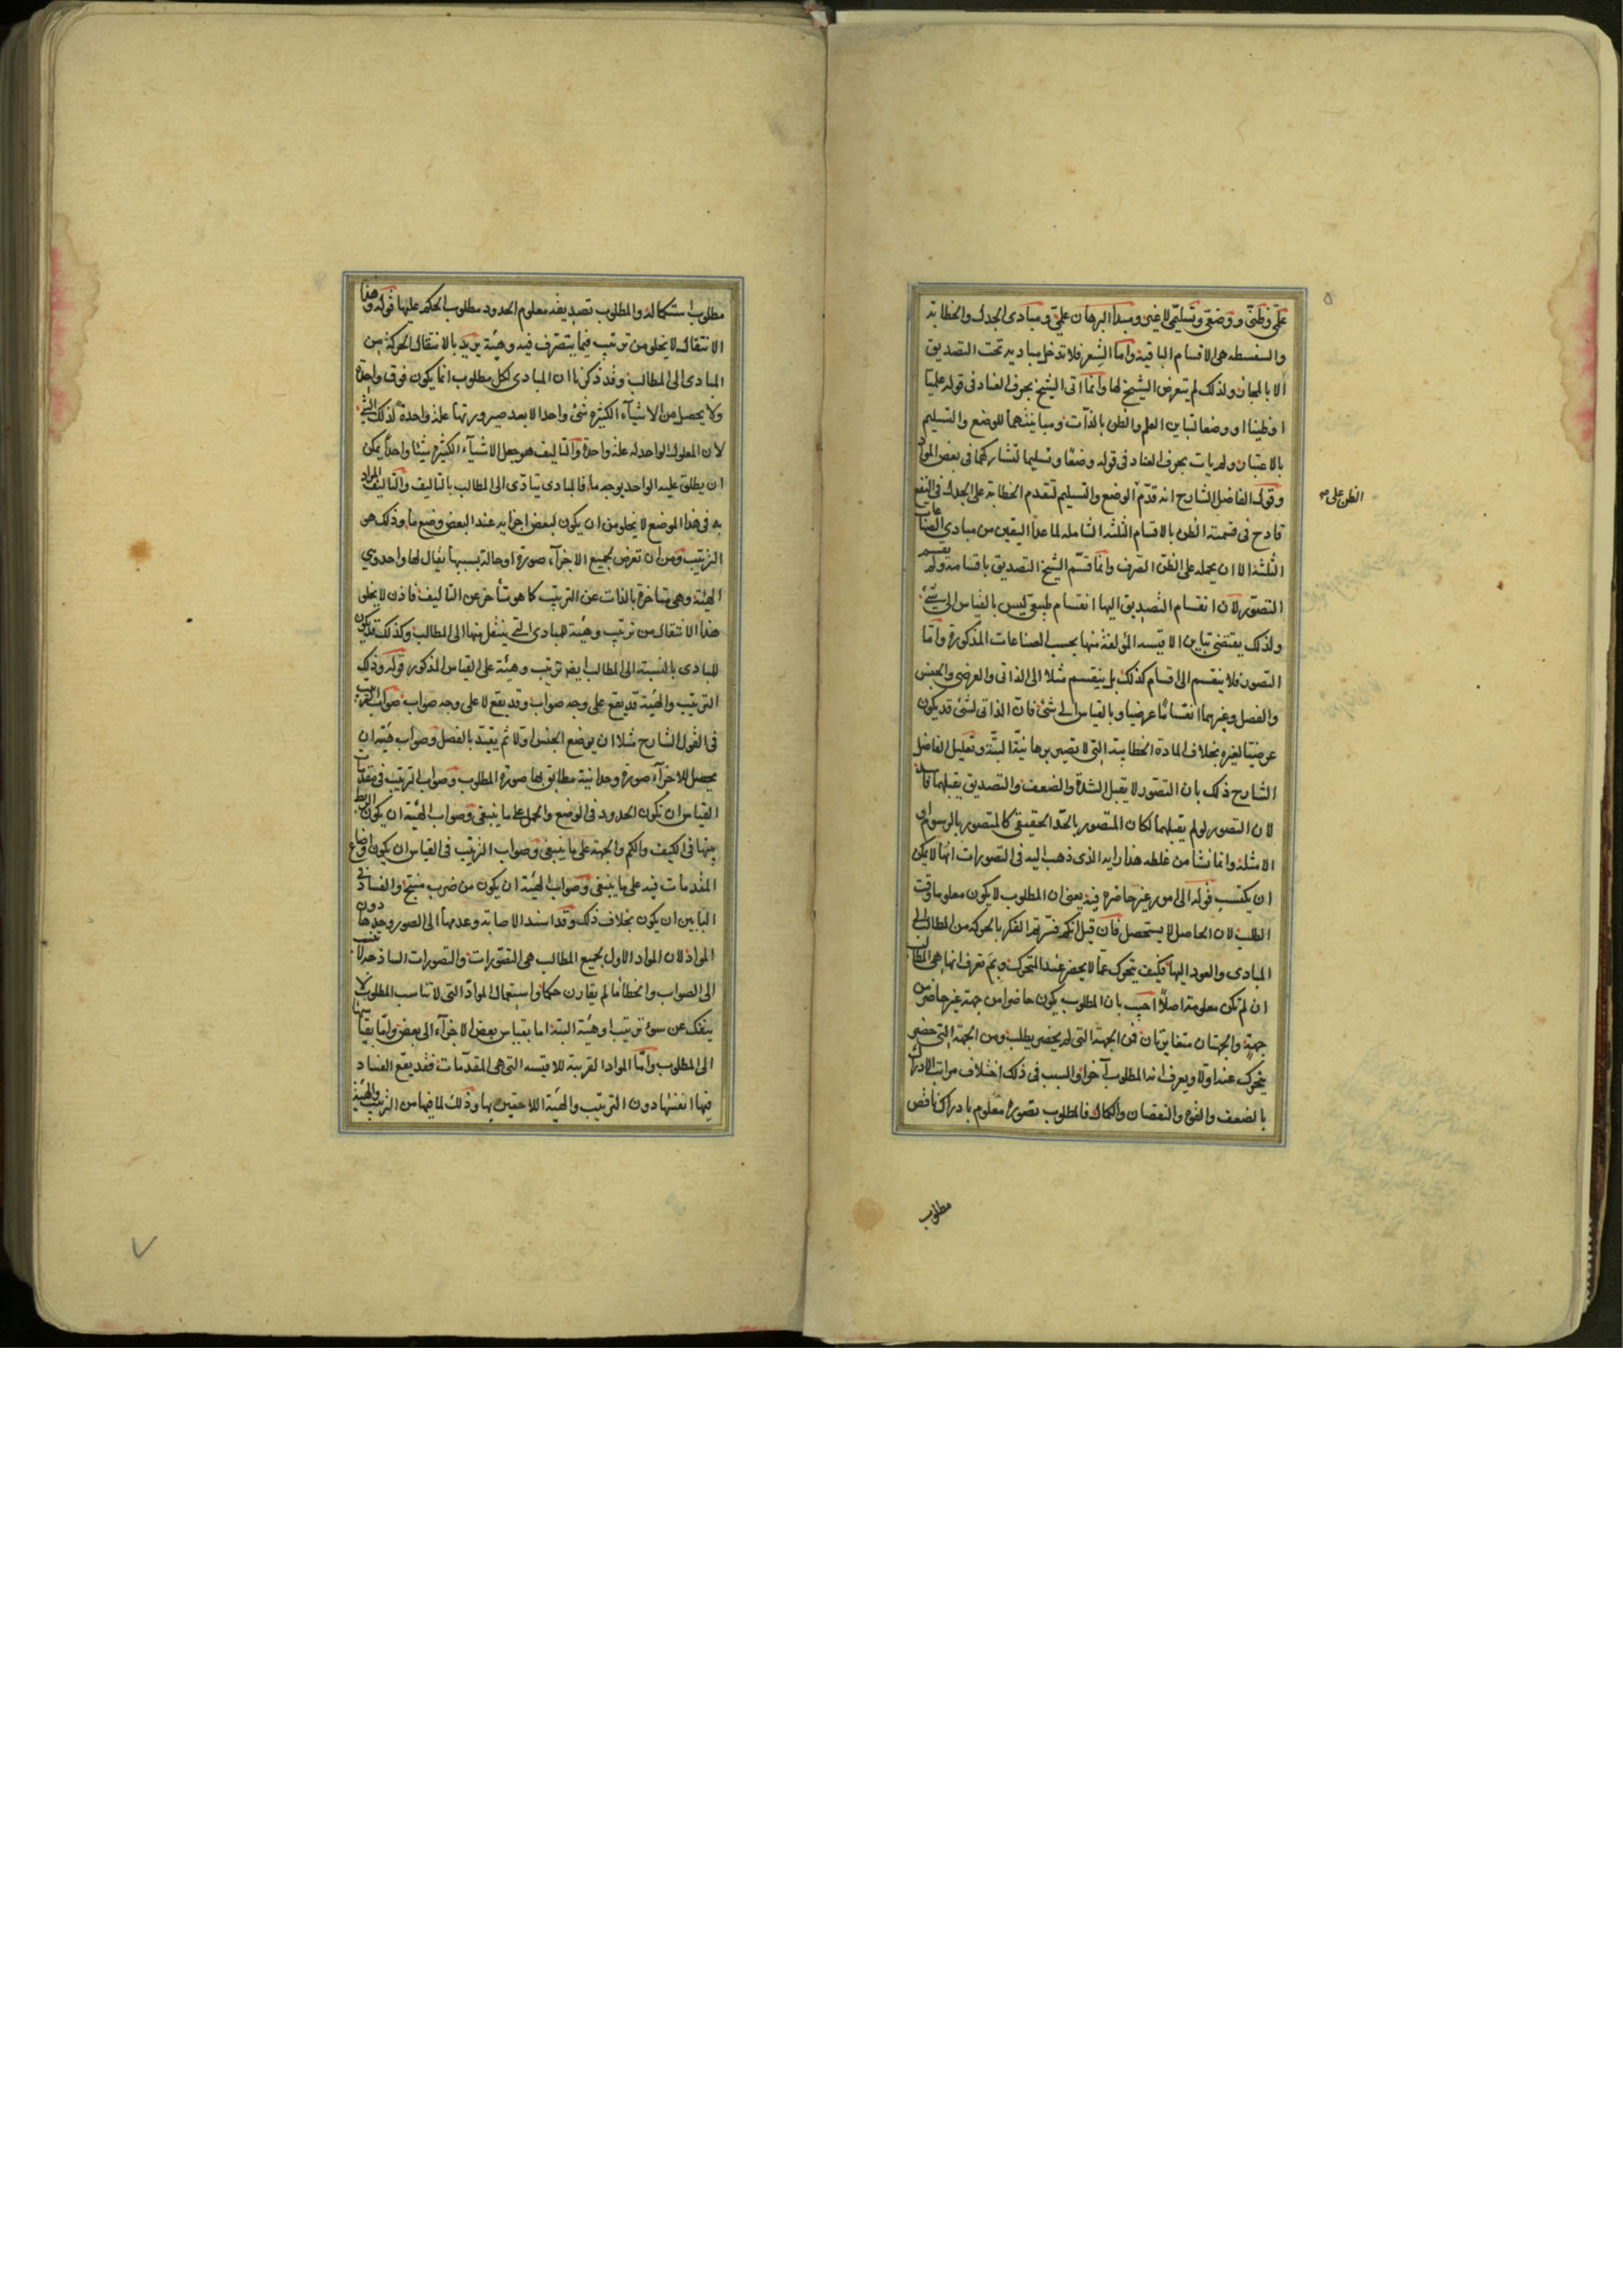 علمى وظنى ووضعى وتسليمى لا غير ومبدأ البرهان علمى ومبادى الجدل والخطابة
والسفسطه هى الاقسام الباقية واما الشعر فلا تدخل مباديه تحت التصديق
الا بالمجاز ولذلك لم يتعرض الشيخ لها وانما اتى الشيخ بحرف العناد فى قوله علميا
او ظنيا او وضعيا لتباين العلم والظن بالذات ومباينتهما للوضع والتسليم
بالاعتبار ولم يات بحرف العناد فى قوله وضعا وتسليما لتشاركهما فى بعض المواد
وقول الفاضل الشارح انه قدم الوضع والتسليم لتقدم الخطابة على الجدل فى النفع
الظن على صح
قادح فى قسمته الظن بالاقسام الثلثة الشامله لما عدا اليقين من مبادى الصناعات
الثلثة الا ان يحمله على الظن الصرف وانما قسم الشيخ التصديق باقسامه ولم يقسم
التصور لان انقسام التصديق اليها انقسام طبيعى ليس بالقياس الى شئ
ولذلك يقتضى تباين الاقيسه المؤلفة منها بحسب الصناعات المذكورة واما
التصور فلا ينقسم الى اقسام كذلك بل ينقسم مثلا الى الذاتى والعرضى والجنس
والفصل وغيرهما انقساما عرضيا وبالقياس الى شئ فان الذاتى لشئ قد يكون
عرضيا لغيره بخلاف المادة الخطابية التى لا تصير برهانية البتة وتعليل الفاضل
الشارح ذلك بان التصور لا يقبل الشدة والضعف والتصديق يقبلهما فاسد
لان التصور لو لم يقبلهما لكان المتصور بالحد الحقيقى كالمتصور بالرسوم او
الامثلة وانما نشا من غلطه هذا رايه الذى ذهب اليه فى التصورات انها لا يمكن
ان يكتسب قوله الى امور غير حاضرة فيه يعنى ان المطلوب لا يكون معلوما وقت
الطلب لان الحاصل لا يستحصل فان قيل انكم فسرتم الفكر بالحركة من المطالب الى
المبادى والعود اليها فكيف يتحرك عما لا يحضر عند المتحرك وبم تعرف انها هى المطالب
ان لم تكن معلومة اصلا اجيب بان المطلوب يكون حاضرا من جهة غير حاضر من
جهة والجهتان متغايرتان فمن الجهة التى لم يحضر يطلب ومن الجهة التى حضر
يتحرك عنه اولا ويعرف انه المطلوب آخرا والسبب فى ذلك اختلاف مراتب الادراك
بالضعف والقوة والنقصان والكمال فالمطلوب تصوره معلوم بادراك ناقص
مطلوب
مطلوب استكماله والمطلوب تصديقه معلوم الحدود مطلوب الحكم عليها قوله وهذا
الانتقال لا يخلو من ترتيب فيما يتصرف فيه وهيئة يريد بالانتقال الحركة من
المبادى الى المطالب وقد ذكرنا ان المبادى لكل مطلوب انما يكون فوق واحدة
ولا يحصل من الاشياء الكثيرة شئ واحد الا بعد صيرورتها علة واحدة لذلك الشئ
لان المعلول الواحد له علة واحدة والتاليف هو جعل الاشياء الكثيرة شيئا واحدا يمكن
ان يطلق عليه الواحد بوجه ما فالمبادى تتادى الى المطالب بالتاليف والتاليف المراد
به فى هذا الموضع لا يخلو من ان يكون لبعض اجزايه عند البعض وضع ما وذلك هو
الترتيب ومن ان تعرض لجميع الاجزاء صورة او حالة بسببها يقال لها واحد وهى
الهيئة وهى متاخرة بالذات عن الترتيب كما هو متاخر عن التاليف فاذن لا يخلو
هذا الانتقال من ترتيب وهيئة للمبادى التى ينتقل منها الى المطالب وكذلك قد يكون
للمبادى بالنسبة الى المطالب ايضا ترتيب وهيئة على القياس المذكور قوله وذلك
الترتيب والهيئة قد يقع على وجه صواب وقد يقع لا على وجه صواب صواب الترتيب
فى القول الشارح مثلا ان يوضع الجنس اولا ثم يقيد بالفصل وصواب هيئته ان
يحصل للاجزاء صورة وحدانية مطابق بها صورة المطلوب وصواب الترتيب فى مقدمات
القياس ان تكون الحدود فى الوضع والحمل على ما ينبغى وصواب الهيئة ان يكون الربط
بينها فى الكيف والكم والجهة على ما ينبغى وصواب الترتيب فى القياس ان يكون اوضاع
المقدمات فيه على ما ينبغى وصواب الهيئة ان يكون من ضرب منتج والفساد فى
البابين ان يكون بخلاف ذلك وقد اسند الاصابة وعدمها الى الصور وحدها دون
المواد لان المواد الاول لجميع المطالب هى التصورات والتصورات الساذجة لا تنسب
الى الصواب والخطا ما لم يقارن حكما واستعمال المواد التى لا تناسب المطلوب لا
ينفك عن سوء ترتيب او هيئة البتة اما بقياس بعض الاجزاء الى بعض واما بقياسها
الى المطلوب واما المواد القريبة للاقيسه التى هى المقدمات فقد يقع الفساد
فيها انفسها دون الترتيب والهيئة اللاحقين بها وذلك لما فيها من الترتيب والهيئة